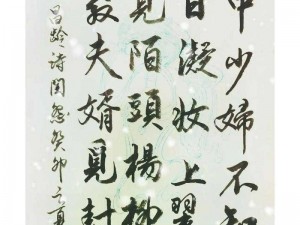 中少婦不知
日凝妆上翠
見陌頭楊柳
教夫婿覓封
昌齡诗闺怨癸卯之夏